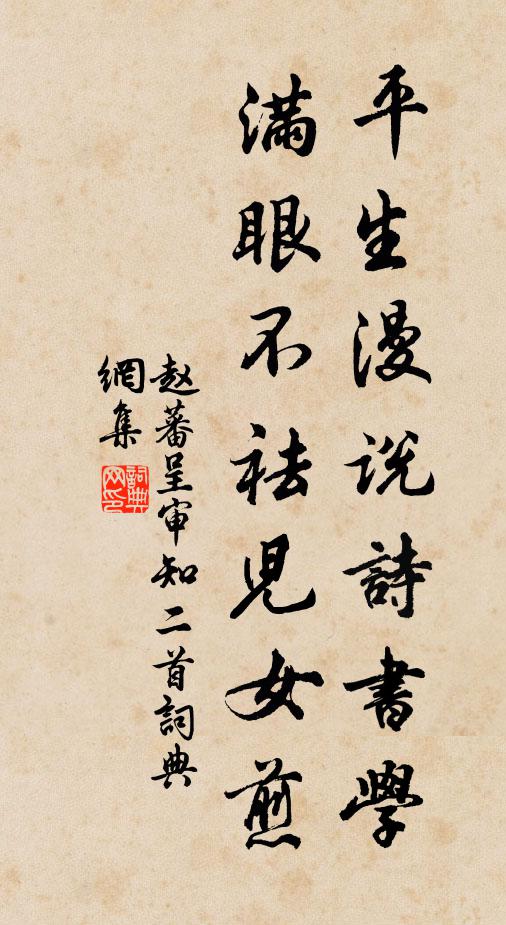 平生漫说詩書學
滿眼不祛兒女煎
赵蕃呈审知二首詞典
網集
詞典网印